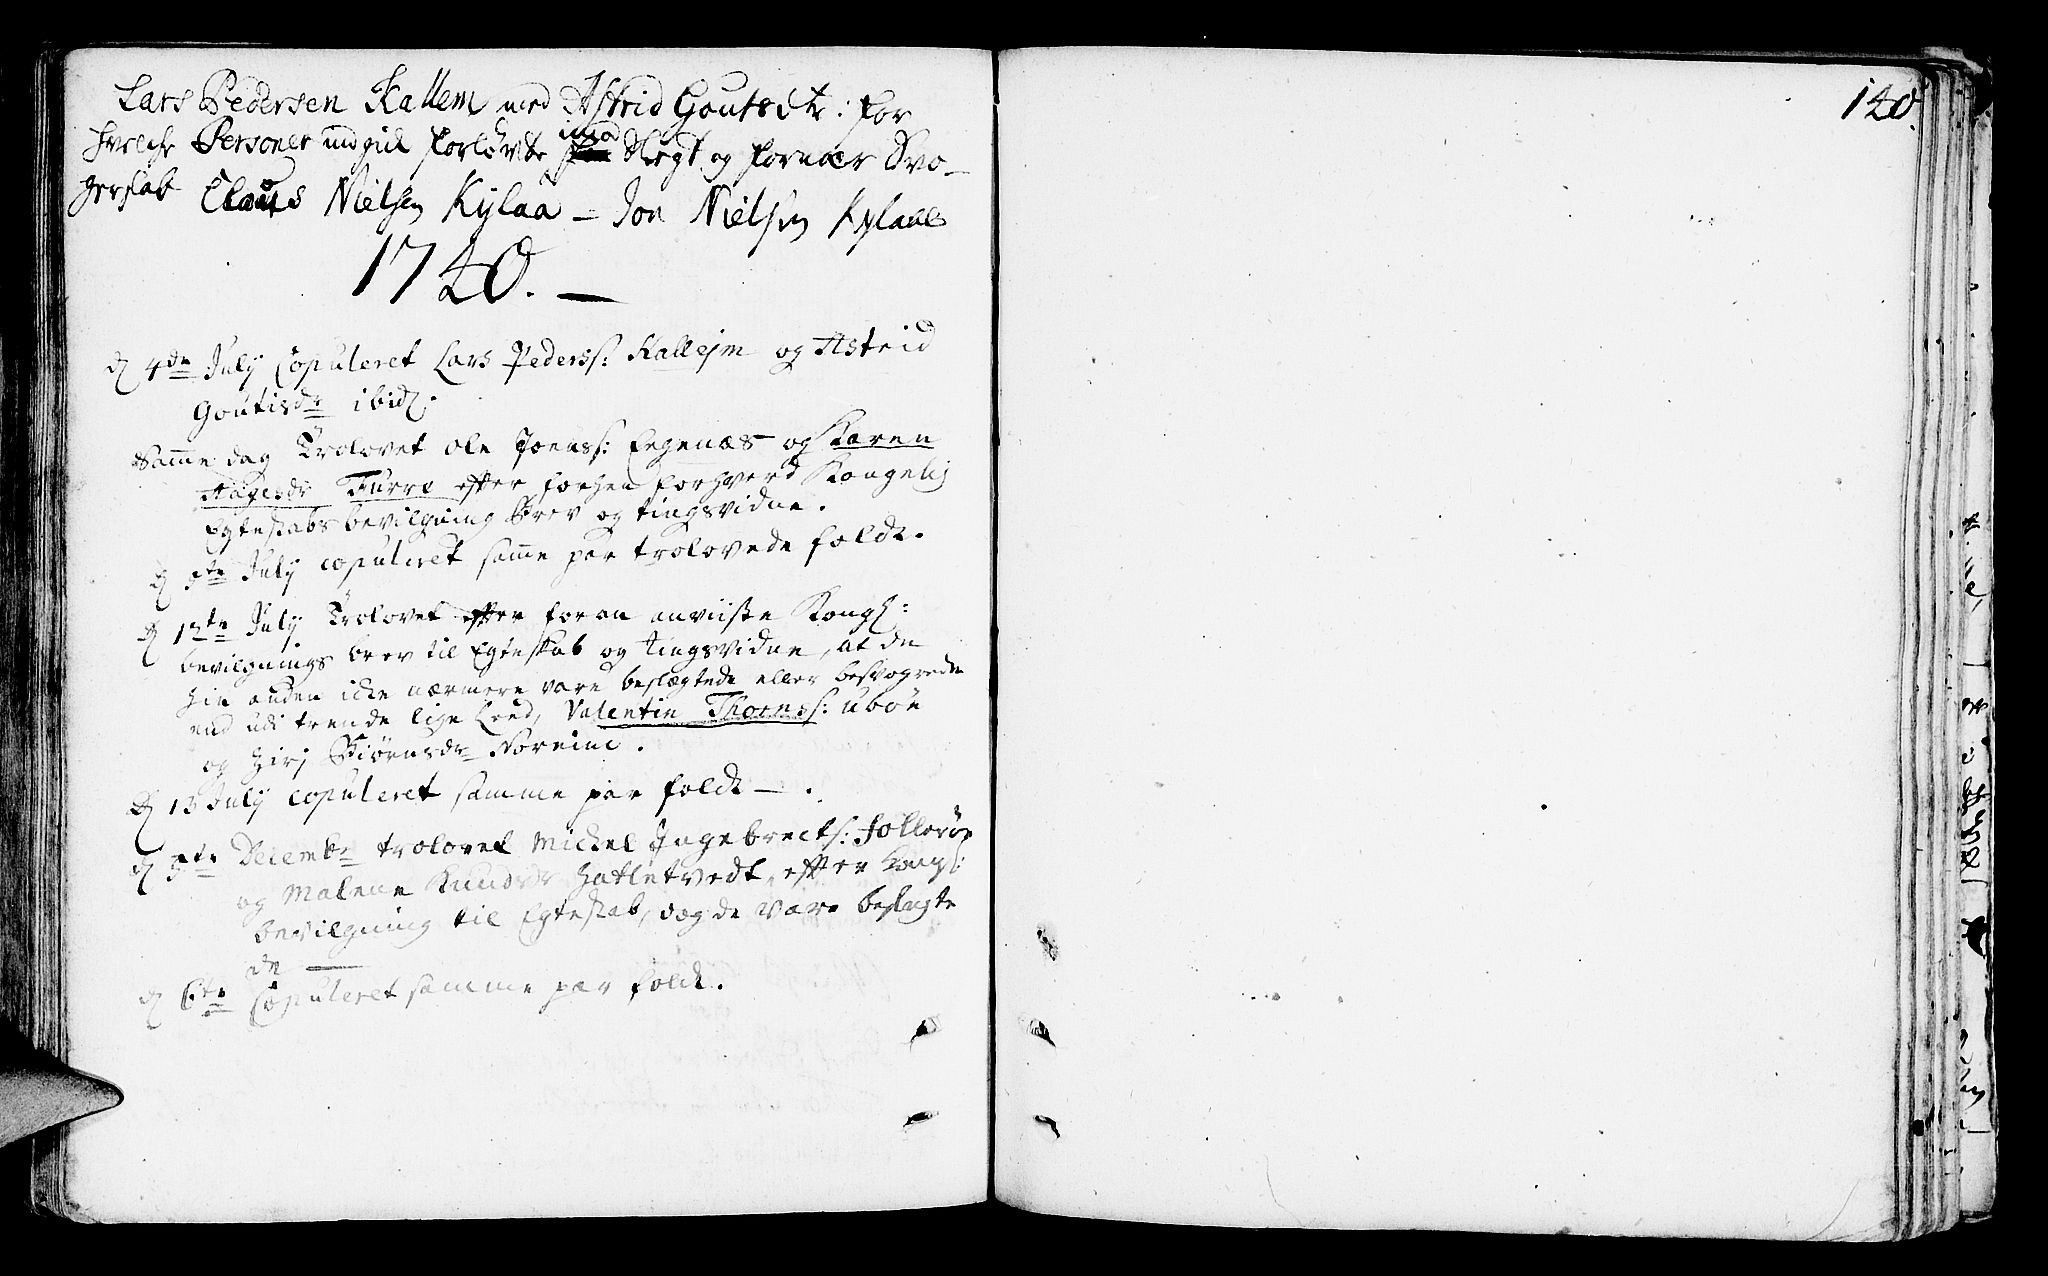 Lars Pedersen Kallem med Astrid Goutsdtr: for
hvelche Personer indgik forlovte imod Slegt og fornær Svo-
gerskab Claus Nielsen Kylaa - Jon Nielsen Kylaae
1740. -
140.
d 4de July Copuleret Lars Pederss: Kallejm og Astrid
Goutisdr ibid.
Samme dag Trolovet ole Joenss: Eegenæs og Karen
Aagesdr Furre efter forhen forhverd Kongelig
Egteskabs bevilgning Brev og tingsvidne.
d 5te July copuleret samme par trolovede folck.
d 12te July Trolovet efter foran anviiste Kongl:
bevilgnings brev til Egteskab og Tingsvidne, at de
hin anden icke nærmere vare beslægtede eller besvogrede
end udi trende lige Leed, Valentin Thoress: ubøe
og Siri Biørnsdr Noreime.
d 13 July copuleret samme par folck - .
d 5te Decembr trolovet Michel Ingebrects: follerøe
og Malene Knudsdr Hatletvedt, efter Kongl:
bevilgning til Egteskab, dog de vare beslegte
de -
d 6te Copuleret samme par folck.